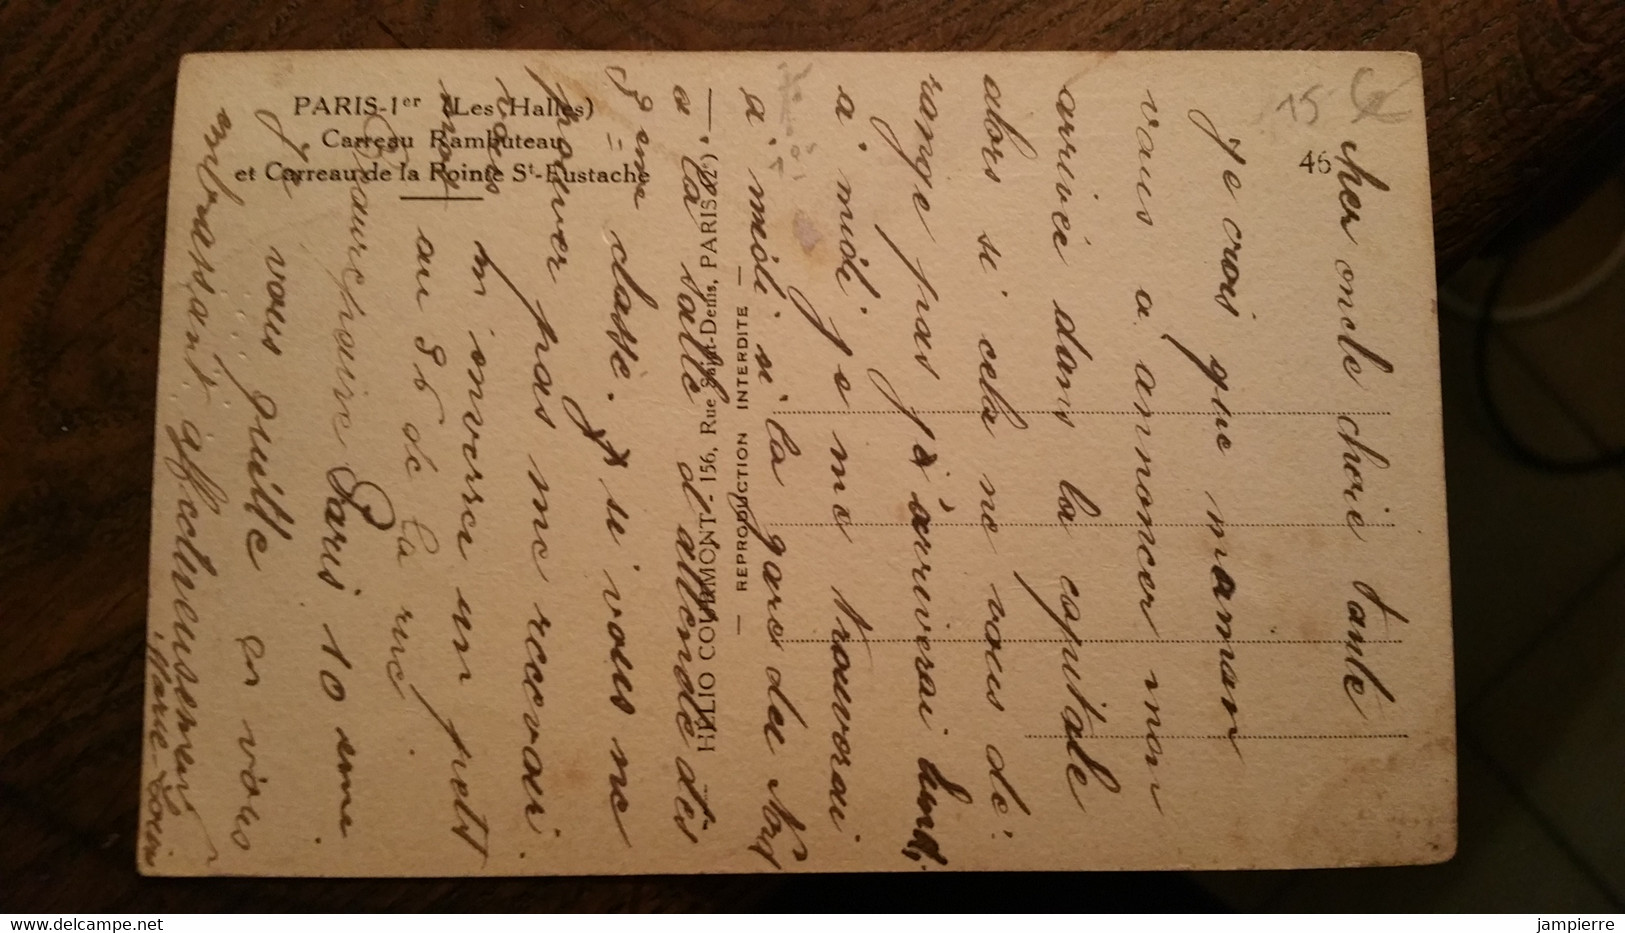 PARIS-1er (Les Halles)
Carreau Rambuteau
et Carreau de la Pointe St-Eustache
46
15
HELIO COURMONT - 156, Rue Saint-Denis, PARIS (2e)
— REPRODUCTION INTERDITE —
cher oncle cherie tante
Je crois que maman
vous a annoncer mon
arrivée dans la capitale
alors si cela ne vous dé
range pas j'arriverai Lundi
a midi je me trouverai
a midi si la gare du Nord
a la salle d'attende des
3 em classe. si vous ne
pouver pas me recevoir.
vous m'inverseu un petit
mot au 36 de la rue
Beaurepaire Paris 10 eme
Je vous quitte en vous
embrassant affectueusement
Marie-Louise
jampierre